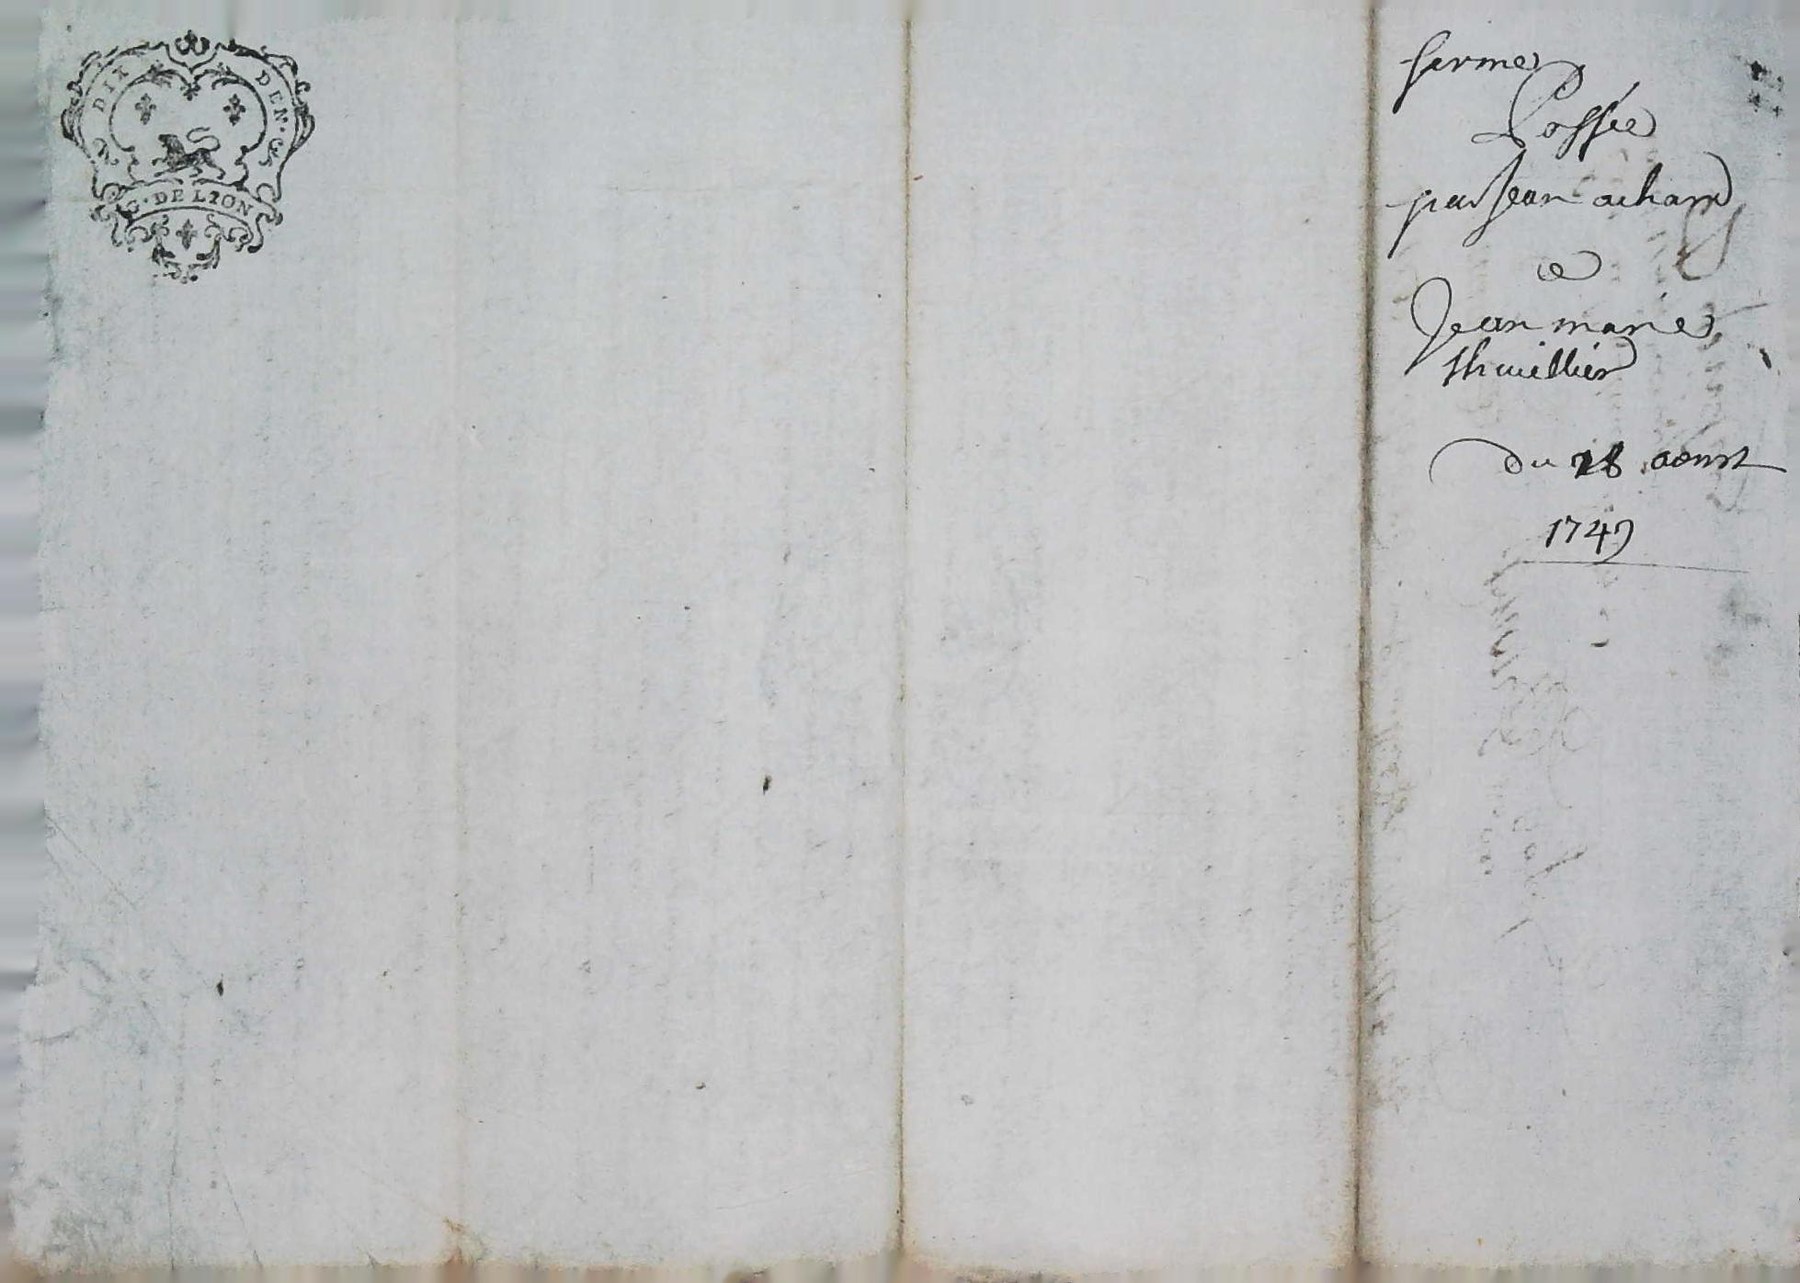 DIX DEN.
G. DE LYON
ferme
Passée
par Jean achard
a
Jean marie
thuillier
du 28 aoust
1749